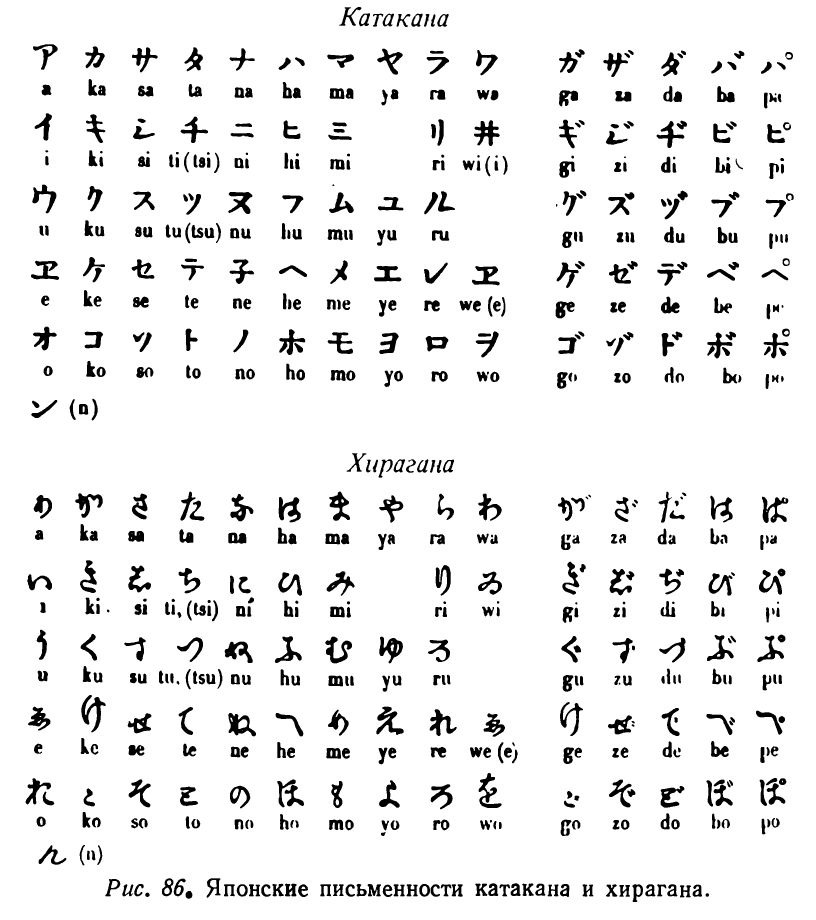 Катакана
ア カ サ タ ナ ハ マ ヤ ラ ワ ガ ザ ダ バ パ
a ka sa ta na ha ma ya ra wa ga za da ba pa
イ キ シ チ ニ ヒ ミ リ 井 ギ ジ ヂ ビ ピ
i ki si ti(tsi) ni hi mi ri wi(i) gi zi di bi pi
ウ ク ス ツ ヌ フ ム ユ ル グ ズ ヅ ブ プ
u ku su tu(tsu) nu hu mu yu ru gu zu du bu pu
ヱ ケ セ テ 子 ヘ メ エ レ ヱ ゲ ゼ デ ベ ペ
e ke se te ne he me ye re we (e) ge ze de be pe
オ コ ソ ト ノ ホ モ ヨ ロ ヲ ゴ ゾ ド ボ ポ
o ko so to no ho mo yo ro wo go zo do bo po
ン (n)
Хирагана
わ か さ た な は ま や ら わ が ざ だ は ぱ
a ka sa ta na ha ma ya ra wa ga za da ba pa
い き し ち に ひ み り ゐ ぎ じ ぢ び ぴ
i ki si ti, (tsi) ni hi mi ri wi gi zi di bi pi
う く す つ ぬ ふ む ゆ ろ ぐ ず づ ぶ ぷ
u ku su tu, (tsu) nu hu mu yu ru gu zu du bu pu
ゑ け せ て ね へ め え れ ゑ け ぜ で べ ぺ
e ke se te ne he me ye re we (e) ge ze de be pe
れ こ そ と の ほ も よ ろ を ご ぞ ど ぼ ぽ
o ko so to no ho mo yo ro wo go zo do bo po
ん (n)
Рис. 86. Японские письменности катакана и хирагана.